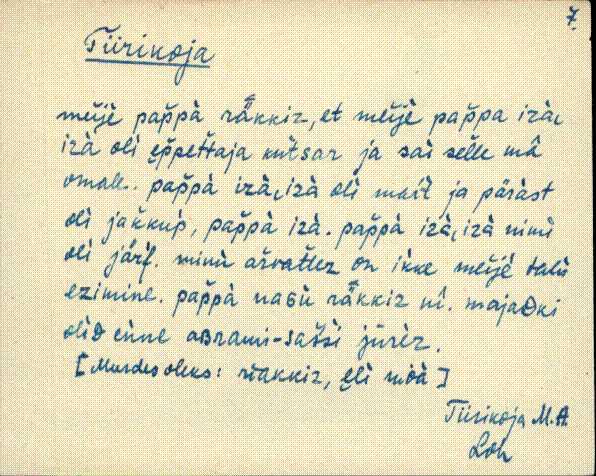 7.
Tiirikoja
meìjè pap̆pà räkkiz, et meìjè pap̆pa izà,
izà oli ęp̆pettaja kùtsar ja sai selle mā
omale. pap̆pà izà, izà oli mait ja päràst
oli jak̆kùp, pap̆pà izà. pap̆pà izà, izà nimi
oli järf. minù arvattez on ikke meìjè talù
ezimine. pap̆pà nagù räkkiz nī. majaᴅki
oliᴅ enne aʙrami-sassi jǖrèz.
[Murdes oleks: riakkiz, ęli mòà]
Tiirikoja M.A.
Loh